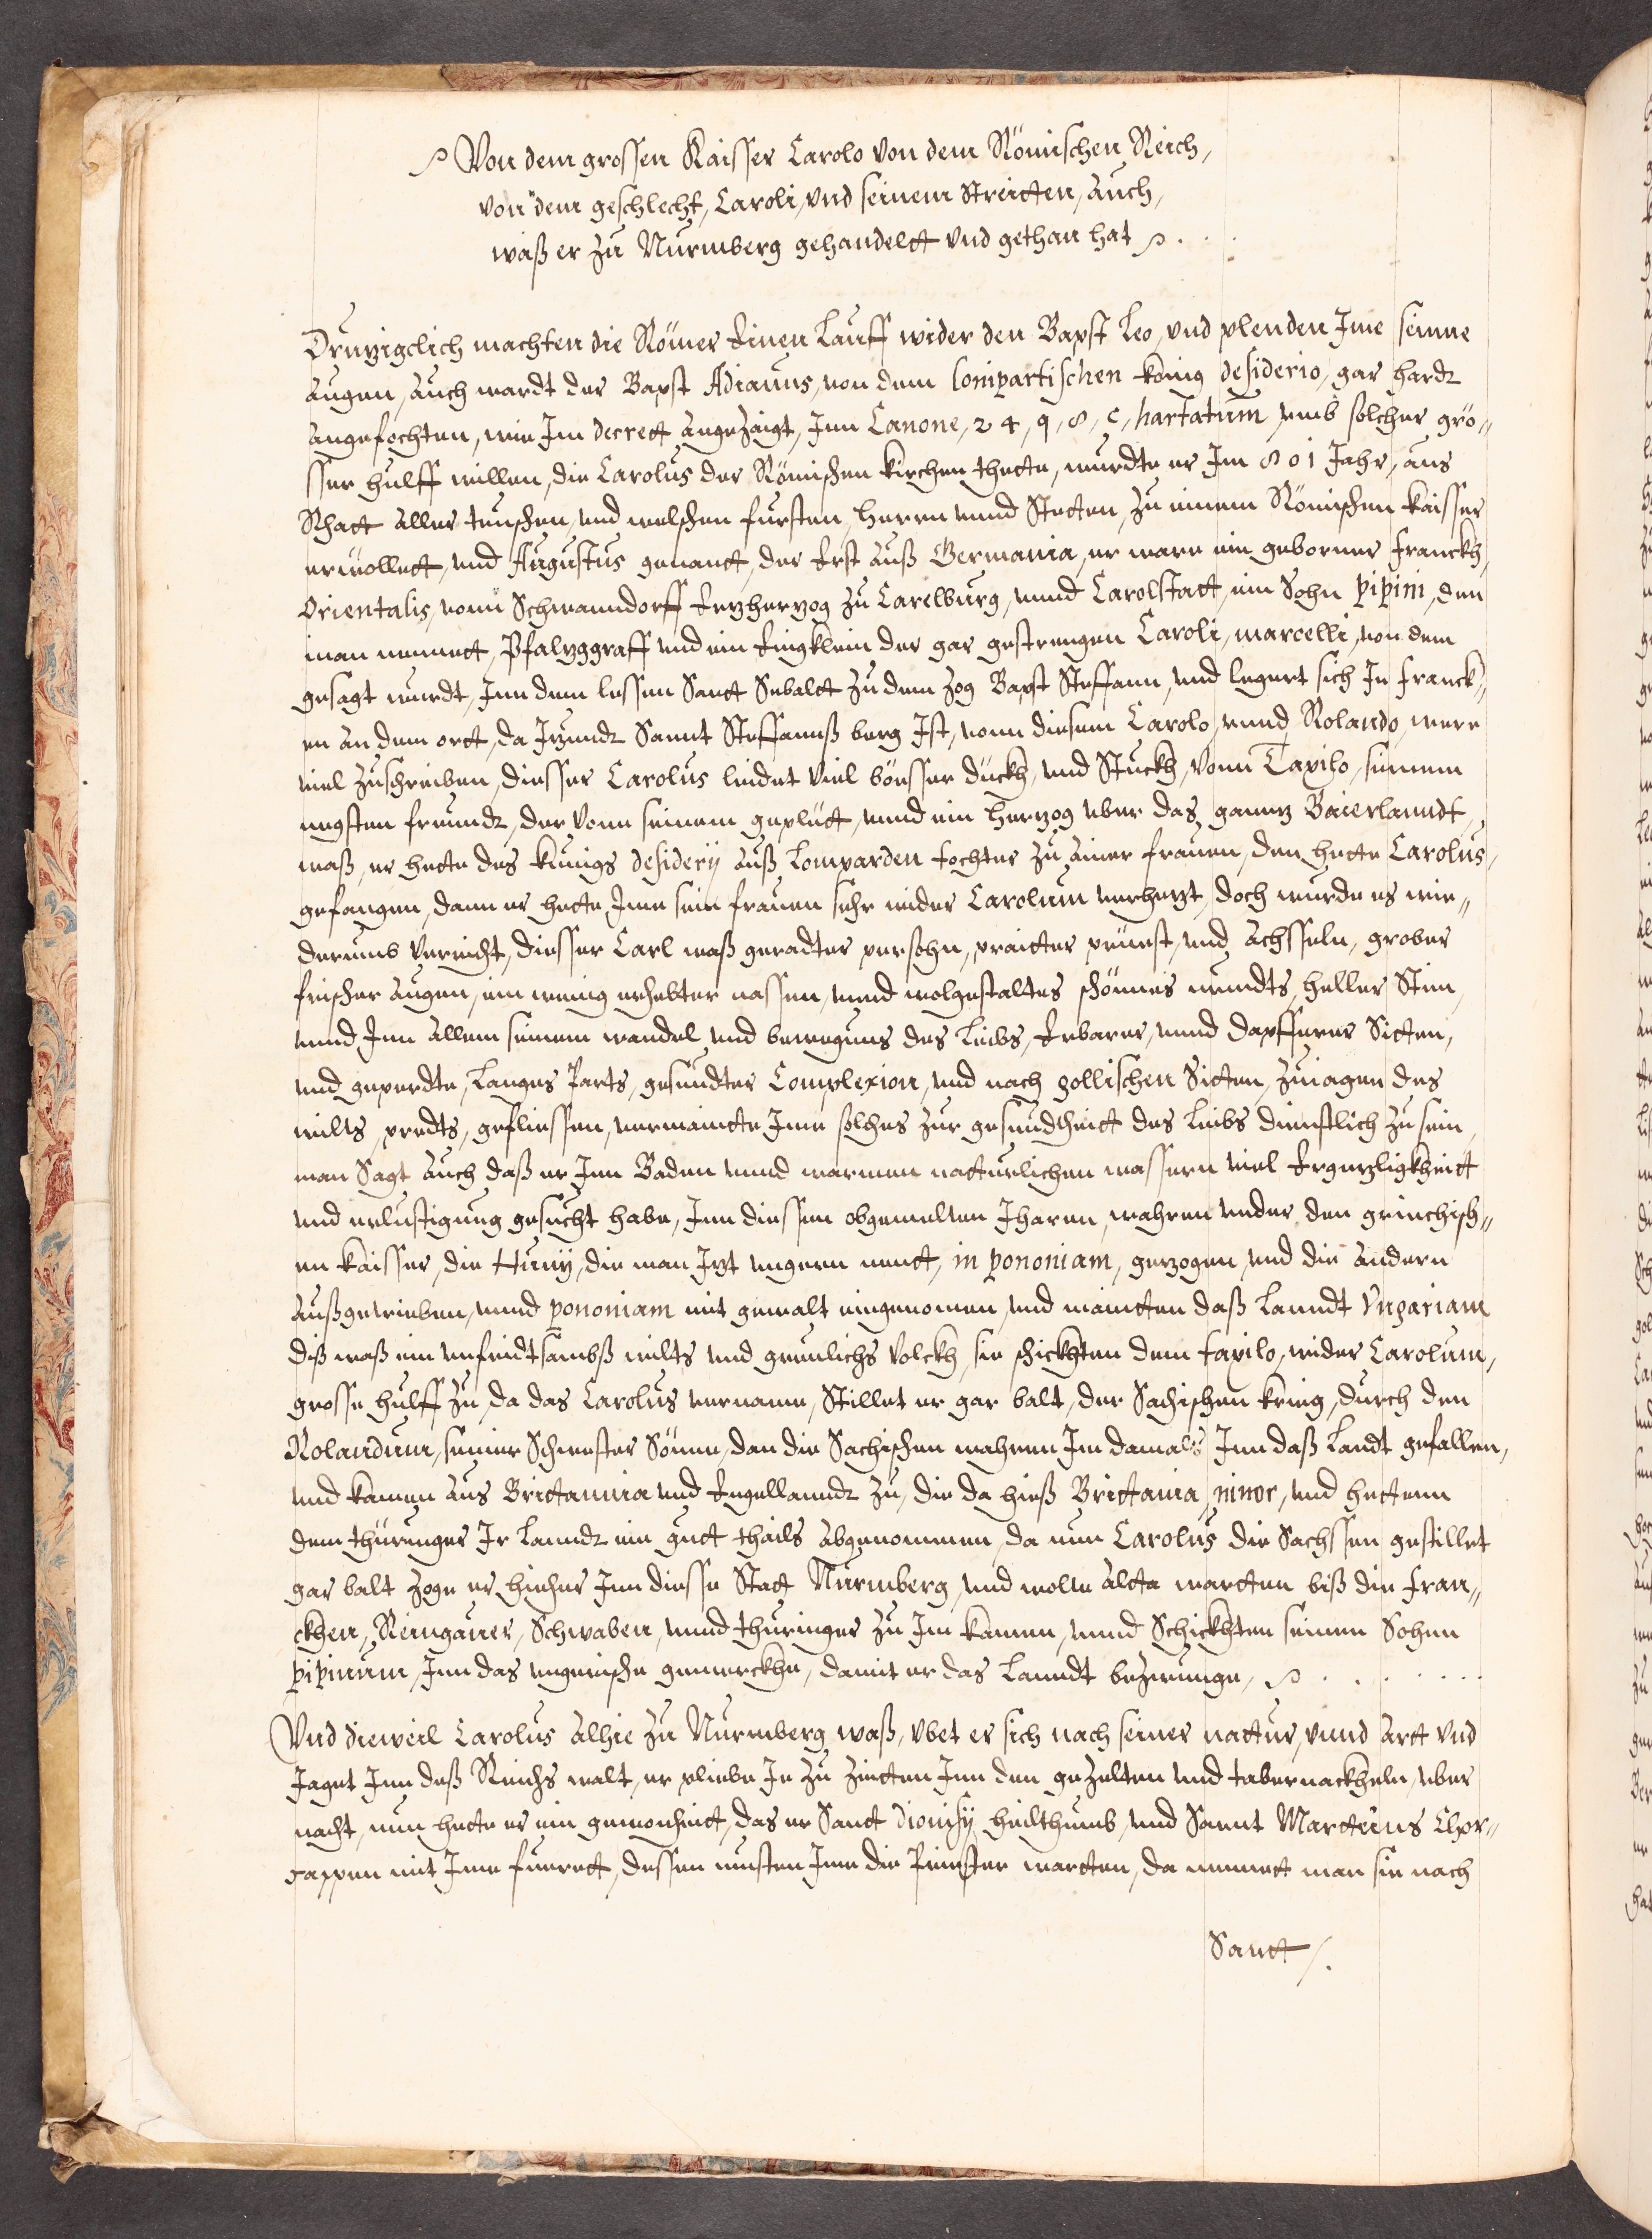 Von dem grossen Kaisser Carolo von dem Römischen Reich,
von dem geschlecht, Caroli, vnd seinem Streitten, auch,
waß er zu Nurmberg gehandeltt vnd gethan hat
Druziglich machten die Römer Einen Lauff wider den Bapst Leo, vnd plenden Ime seinne
augen, auch wardt der Bapst Adianus, von dem lompartischen könig desiderio, gar hardt
angefochten, wie Im decrett angezaigt, Inn Canone, 24, q, 8, c, hartatum vmb solcher grö„
sser hulff willen, die Carolus der Römischen kirchen thette, wurdte er Im 801 Jahr, aus
Rhatt aller teuschen, vnd welschen fursten, Herrn vnnd Stetten, zu einem Römischen kaisser
erwöllett, vnd Augustus genantt, der Erst auß Germania, er ware ein geborner Franckh,
Orientalis, vonn Schwanndorff Erzherzog zu Carelburg, vnnd Carolstatt, ein Sohn pipini, den
man nennett, Pfalzggraff vnd ein Eingklein der gar gestrengen Caroli, marcelli, von dem
gesagt wurdt, Inn dem lessen Sanct Sebaldt zu dem zog Bapst Steffann, vnd legert sich In Franck„
en an dem ortt, da Izundt Sannt Steffannß berg Ist, vonn diesem Carolo, vnnd Rolando, were
viel zuschreiben, diesser Carolus leidet viel bösser dückh, vnd Stuckh, vonn Taxilo, seinem
negsten freundt, der vonn seinem geplütt, vnnd ein Herzog vber das gannz Baierlanndt,
waß, er hette des kunigs desiderÿ auß Lomparden tochter zu ainer frauen, den hette Carolus,
gefangen, dann er hette Inn sein frauen sehr wider Carolum verhezt, doch wurde es wie„
derumb vericht, diesser Carl waß geradter persohn, praitter prüst, vnd achsseln, grober
frischer augen, ein wenig erhebter nassen, vnnd wolgestaltes schönnes mundts, heller Stim,
vnnd Inn allem seinem wandel vnd bewegung des Leibs, Erbarer, vnnd dapfferer Sitten,
vnd geperdte, Langes Parts, gesundter Complexion, vnd nach gollischen Sitten, zuiagen des
wilts predts, gefliessen, vermaintte Ime solches zur gesundtheitt des Leibs dienstlich zu sein,
man Sagt auch daß er Inn Baden vnnd warmen natturlichen wassern viel Ergezligkheitt
vnd erlustigung gesucht habe, Inn diessen obgemelten Jharen, wahren vnder den griechisch„
en kaisser, die Hunÿ, die man Izt vngern nentt, in pononiam, gezogen, vnd die andern
außgetrieben, vnnd pononiam mit gewalt eingenomen, vnd maintten daß Lanndt Vngariam
diß waß ein vnfridtsambß wilts vnd greulichs Volckh, sie schickhten dem taxilo, wider Carolum,
grosse hulff zu, da das Carolus vername, Stillet er gar balt, der Sachischen krieg, durch den
Rolandum, seiner Schwester Sönne, dan die Sachischen wahren Im damals Inn daß Landt gefallen,
vnd kamen aus Brittannia vnd Engellanndt zu, die da hieß Brittania, minor, vnd hettenn
dem thüringer Ir lanndt ein gutt thails abgenommen, da nun Carolus die Sachssen gestillet
gar balt zoge er hieher Inn diesse Statt Nurmberg, vnd wolte alda wartten biß die Fran„
ckhen, Reingauer, Schwaben, vnnd thuringer zu Im kamen, vnnd Schickhten seinen Sohnn
pipinum, Inn das vngerische gemerckhe, damit er das Lanndt bezwunge,
Vnd dieweil Carolus alhie zu Nurmberg waß, vbet er sich nach seiner nattur, vnnd artt vnd
Jaget Inn deß Reichs walt, er pliebe Je zu zeitten Inn den gezelten vnd tabernackheln, vber
nacht, nun hette er ein gewonheitt, das er Sanct dionisÿ heilthumb, vnd Sannt Marttins Chor„
cappen mit Ime fuerett, dessen musten Ime die Priester wartten, da nennett man sie nach
Sanct